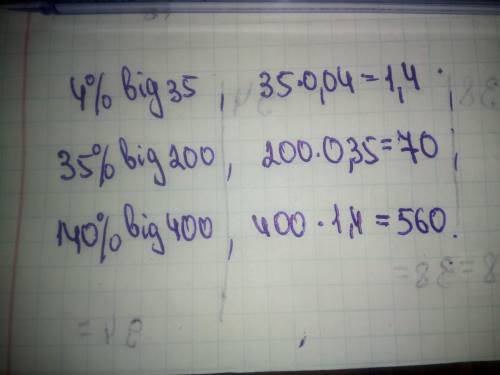 4% від 35, 35·0,04=1,4;
35% від 200, 200·0,35=70;
140% від 400, 400·1,4=560.